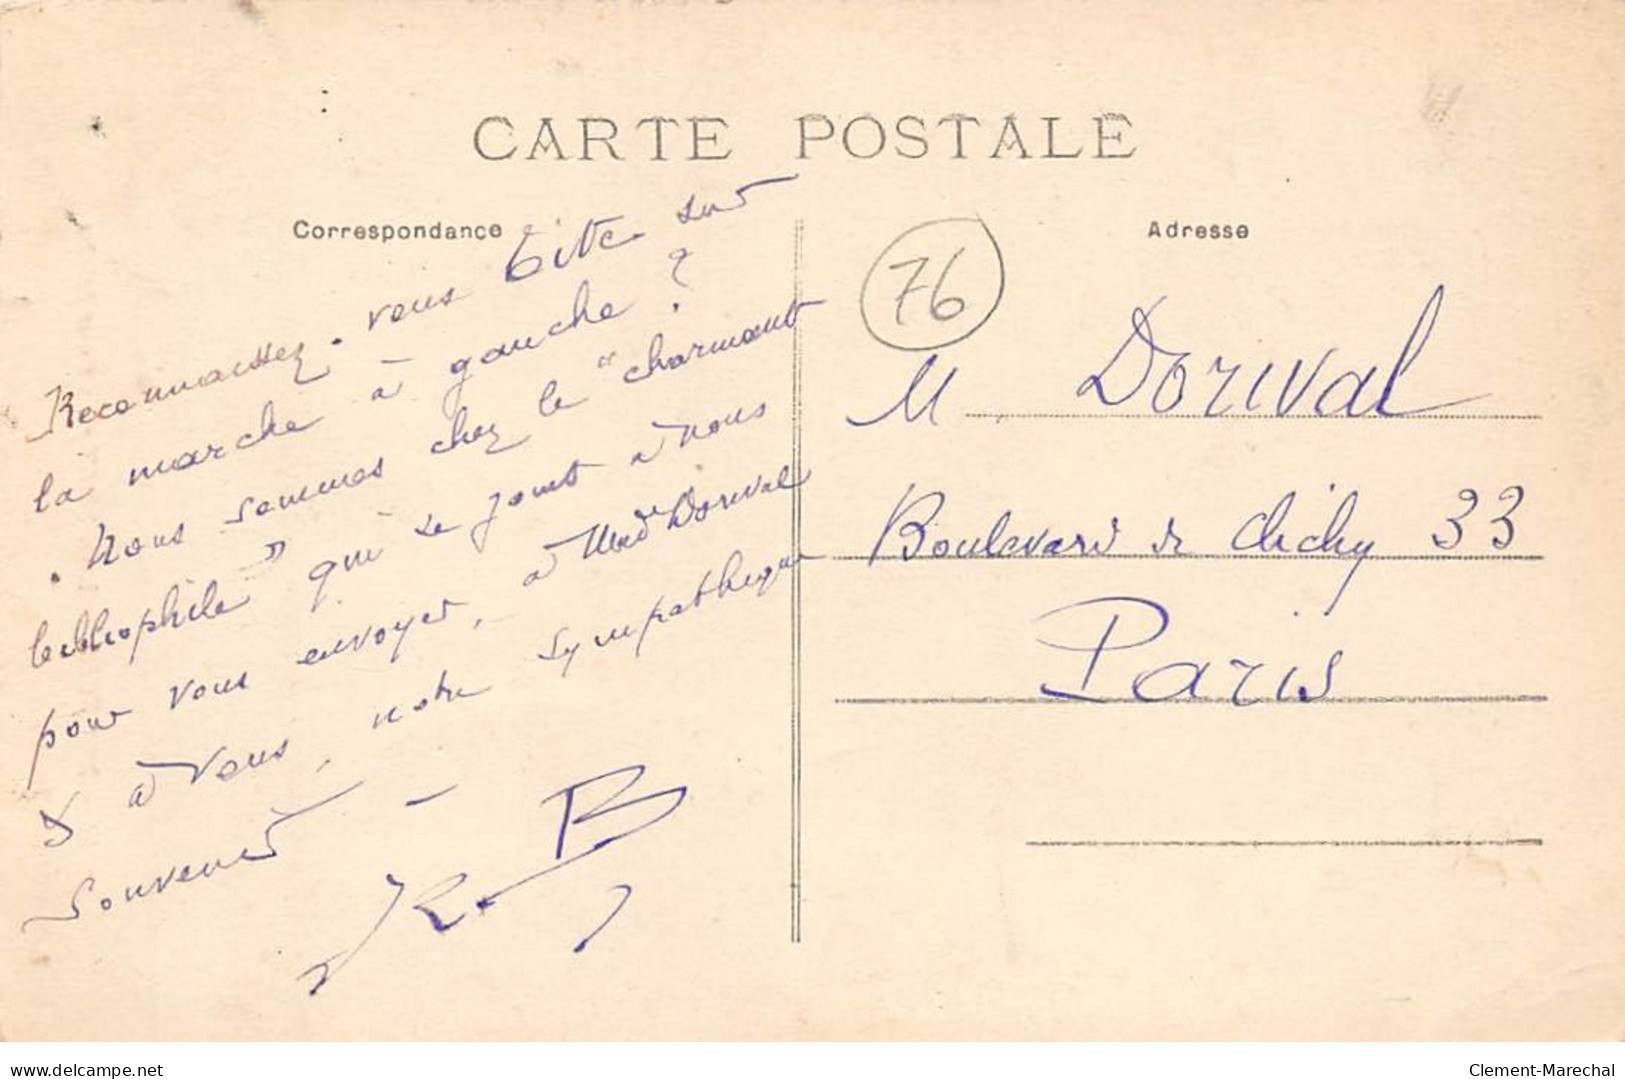 CARTE POSTALE
Correspondance
Reconnaissez-vous Tite sur
la marche à gauche ?
. Nous sommes chez le "charmant
bibliophile" qui se joint à nous
pour vous envoyer, à Made Dorival
& à Vous, notre sympathique
Souvenir –
R. B
Adresse
76
M Dorival
Boulevard de Clichy 33
Paris
delcampe.net
Clement-Marechal